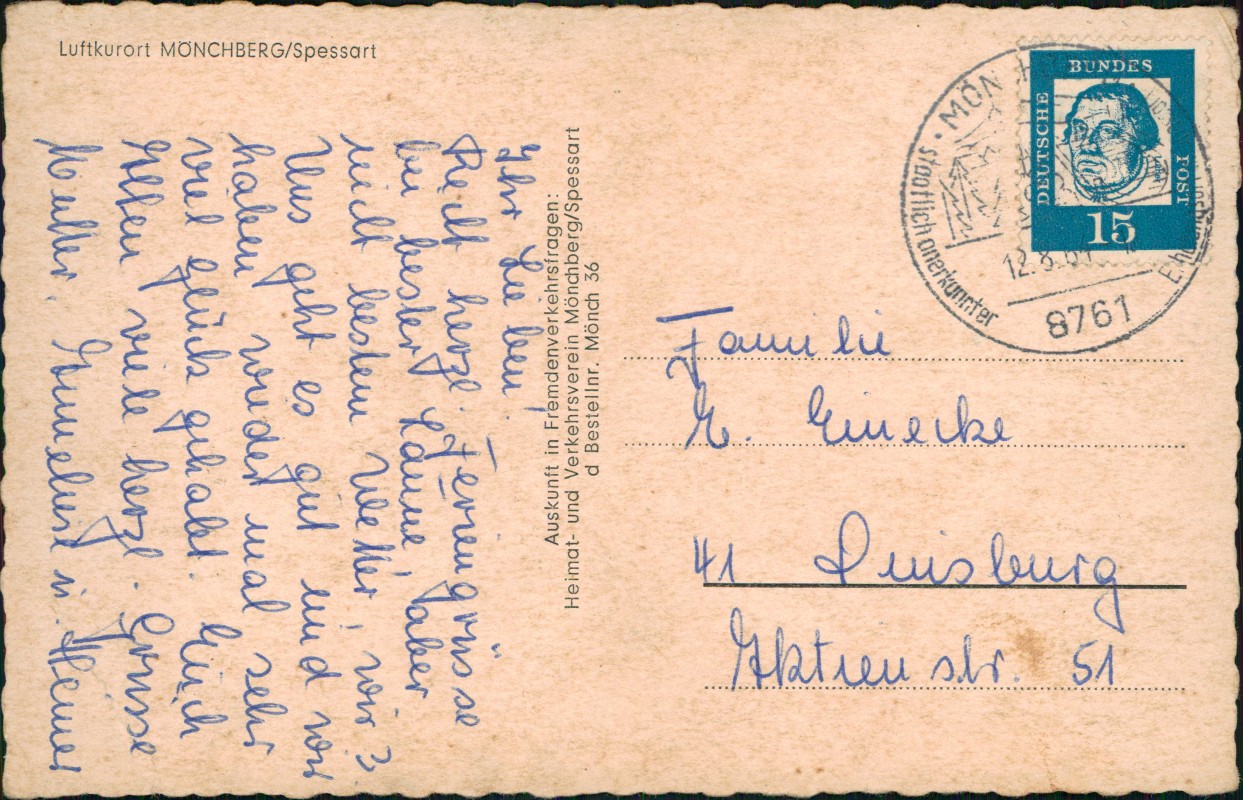 Luftkurort MÖNCHBERG/Spessart
Ihr Lieben!
Recht herzl. Feriengrüsse
bei bester Laune, aber
nicht bestem Wetter, wir 3.
Uns geht es gut und wir
haben wieder mal sehr
viel Glück gehabt. Euch
Allen viele herzl. Grüsse
Mutter, Anneliese u. Heiner
Auskunft in Fremdenverkehrsfragen:
Heimat- und Verkehrsverein Mönchberg/Spessart
d Bestellnr. Mönch 36
DEUTSCHE BUNDES POST
15
staatlich anerkannter
12.8.64
8761
Familie
E. Einecke
41 Duisburg
Aktienstr. 51